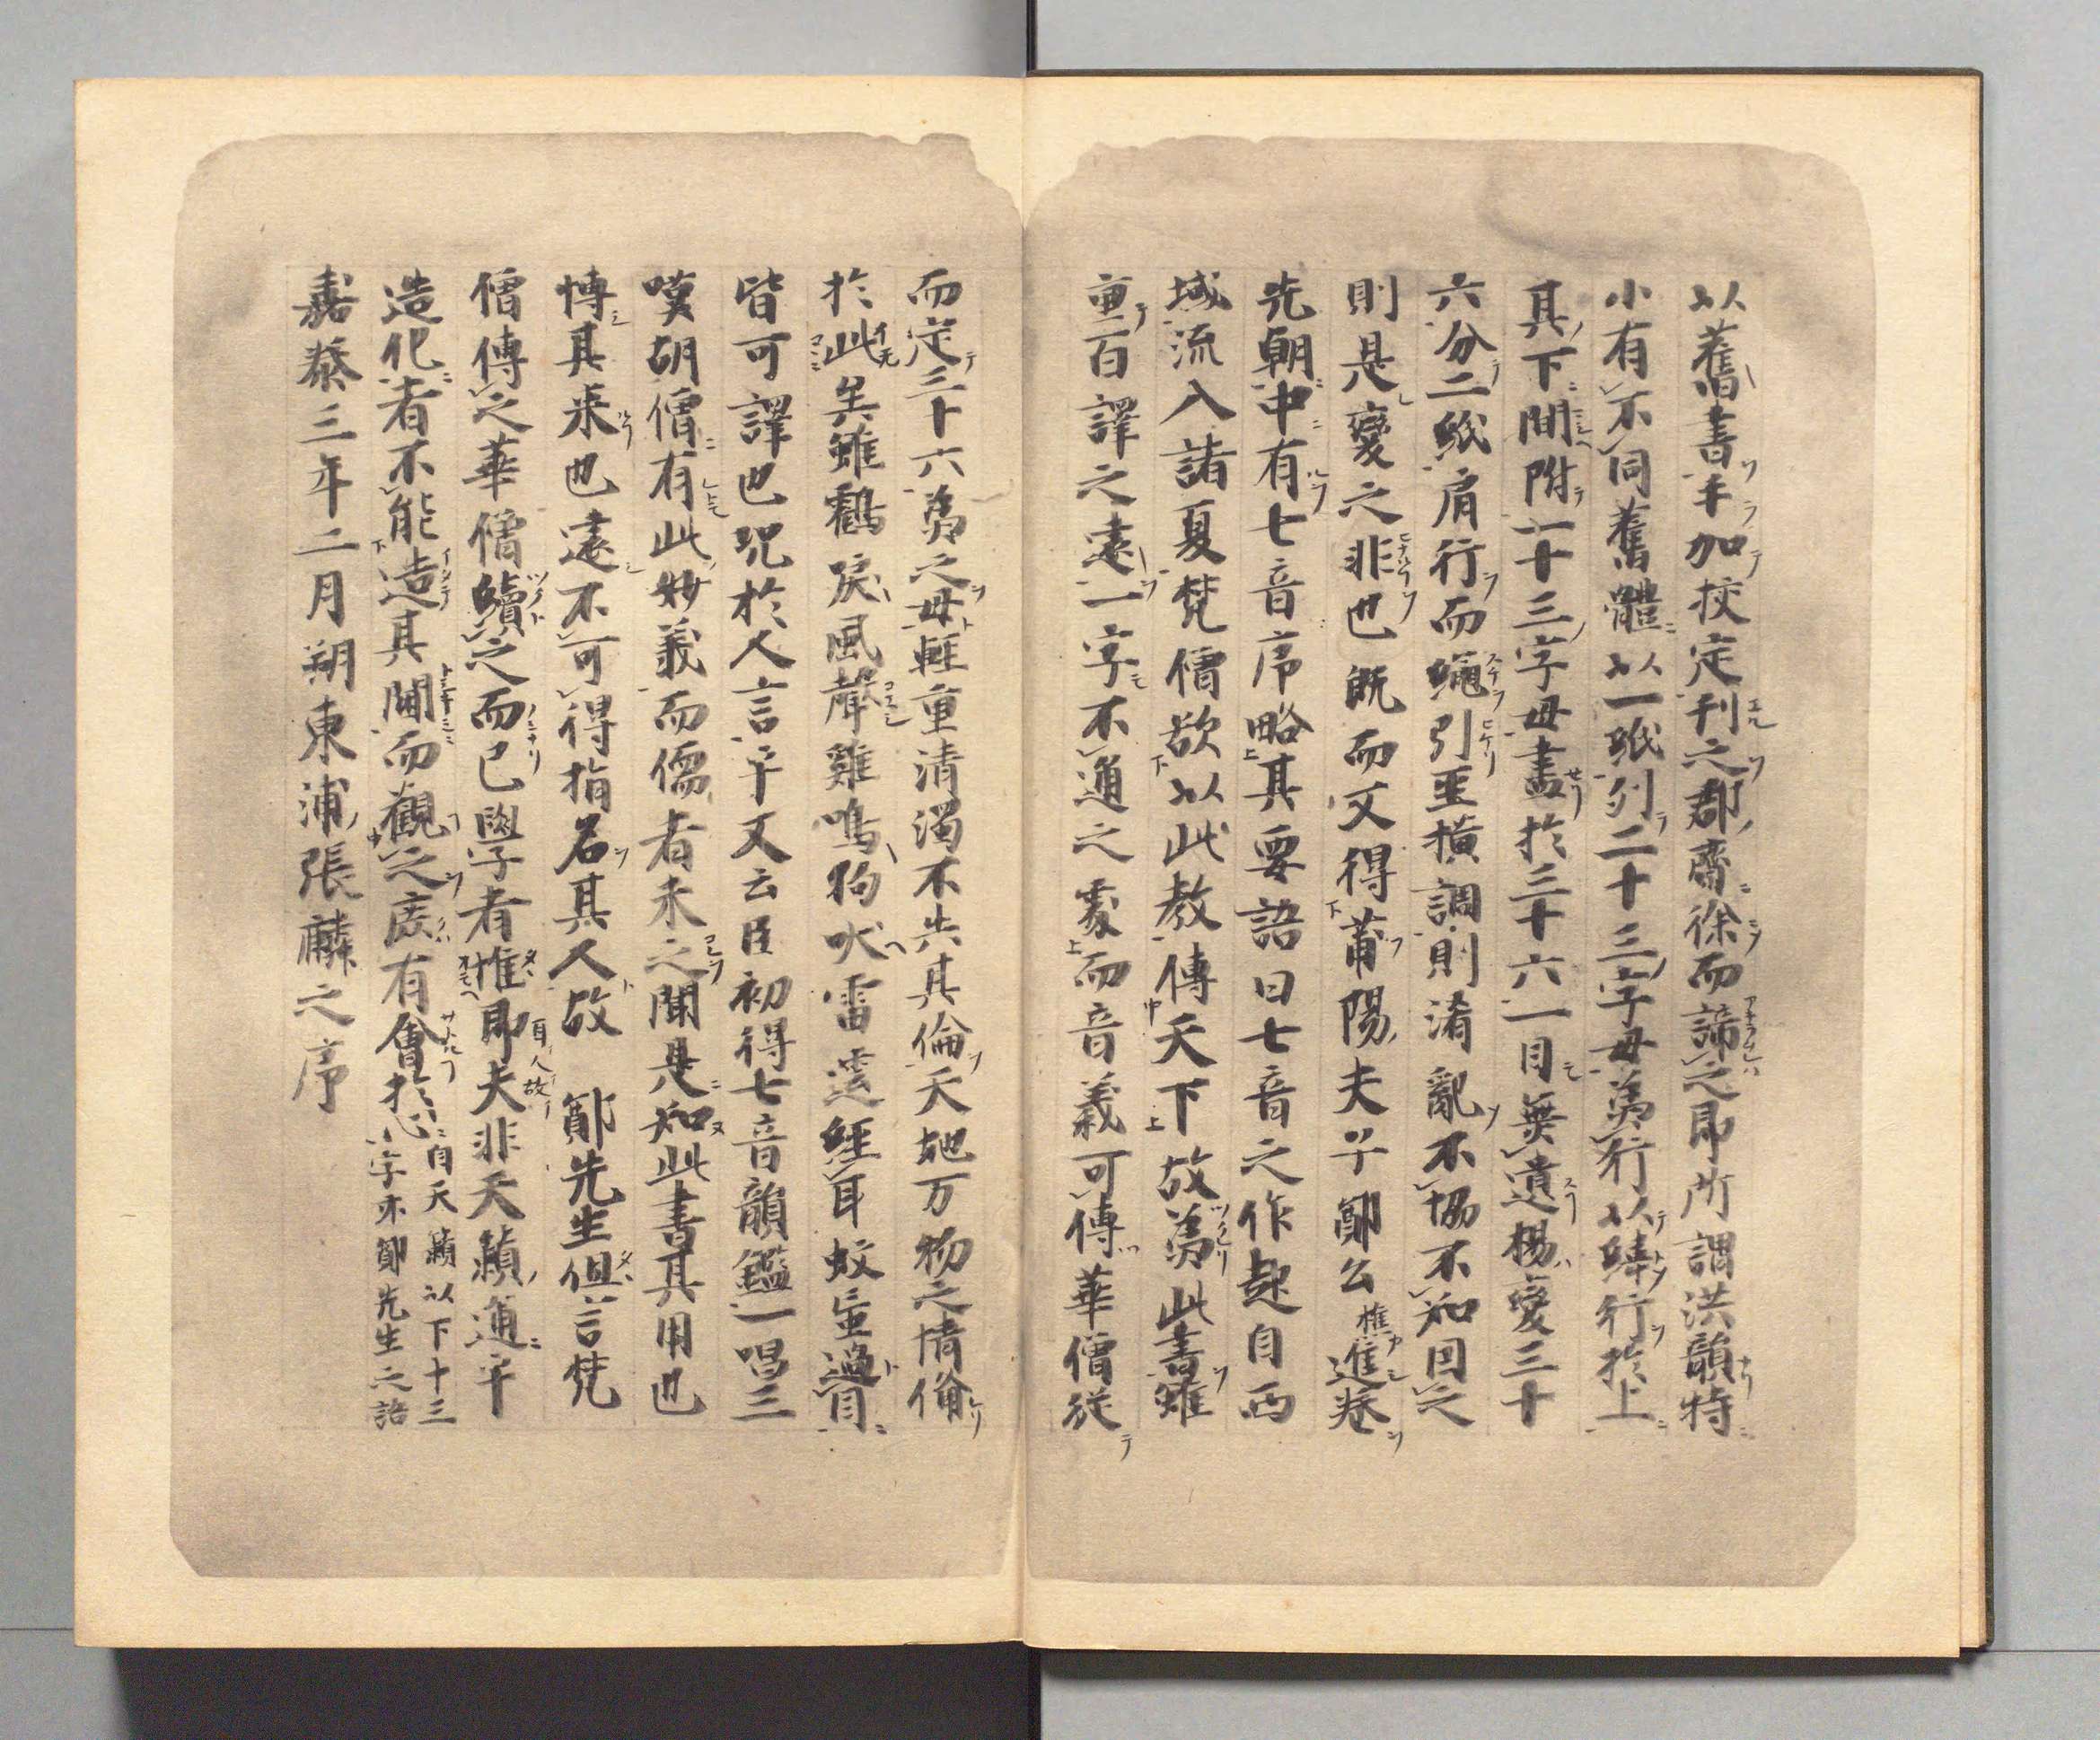 以舊書手加挍定刊之郡齋徐而諦之即所謂洪韻特
小有不同舊體以一紙列二十三字母苐行以緯行於上
其下間附一十三字母盡於三十六一目無遺楊變三十
六分二紙肩行而繩引至橫調則淆亂不協不知因之
則是變之非也既而又得莆陽夫子鄭公樵進卷
先朝中有七音序略其要語曰七音之作起自西
域流入諸夏梵僧欲以此教傳天下故為此書雖
重百譯之遠一字不通之處而音義可傳華僧從
而定三十六為之母輕重清濁不失其倫天地万物之情俻
於此矣雖鶴唳風聲雞鳴狗吠雷霆經耳蚊䖟過目
皆可譯也况於人言乎又云臣初得七音韻鑑一唱三
嘆胡僧有此妙義而儒者未之聞是知此書其用也
博其来也遠不可得指名其人故 鄭先生但言梵
僧傳之華僧續之而已學者惟即夫非天籟通乎
造化者不能造其閫而觀之庻有會於心自天籟以下十三
字亦鄭先生之語
嘉㤗三年二月朔東浦張麟之序